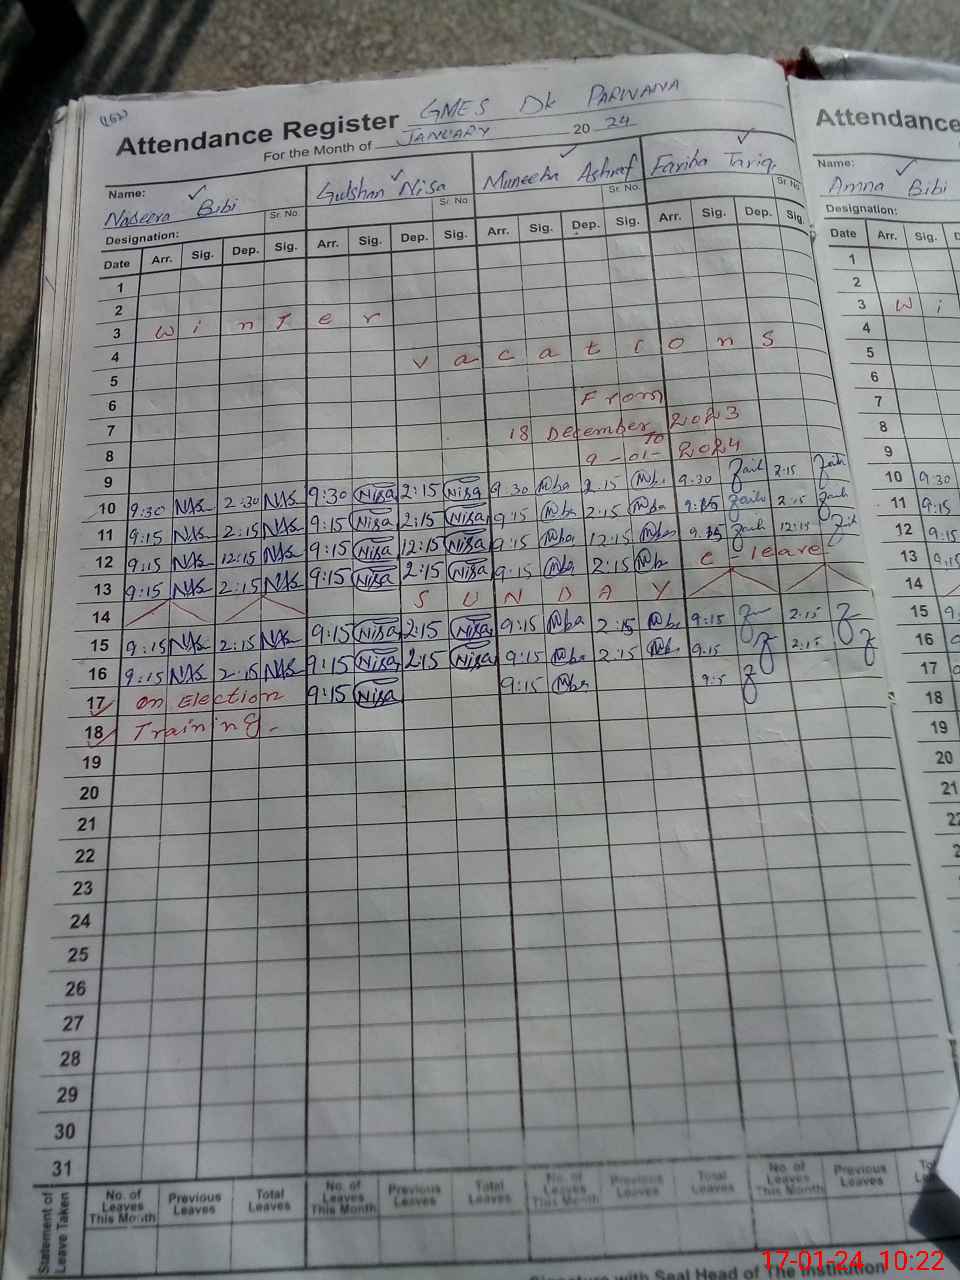 (162)
Attendance Register GMES Dk PARWANA
For the Month of JANUARY 2024
Name: Naseera Bibi Gulshan Nisa Muneeba Ashraf Fariha Tariq.
Sr. No. Sr. No. Sr. No. Sr. No.
Designation:
Date Arr. Sig. Dep. Sig. Arr. Sig. Dep. Sig. Arr. Sig. Dep. Sig. Arr. Sig. Dep. Sig.
1
2
3 Winter
4 vacations
5
6 From
7 18 December 2023
8 To 9-01-2024
9
10 9:30 NAS 2:30 NAS 9:30 Nisa 2:15 Nisa 9:30 2:15 9:30 2:15
11 9:15 NAS 2:15 NAS 9:15 Nisa 2:15 Nisa 9:15 2:15 2:15
12 9:15 NAS 12:15 NAS 9:15 Nisa 12:15 Nisa 9:15 12:15 12:15
13 9:15 NAS 2:15 NAS 9:15 Nisa 2:15 Nisa 9:15 2:15 C-leave
14 SUNDAY
15 9:15 NAS 2:15 NAS 9:15 Nisa 2:15 Nisa 9:15 2:15 9:15 2:15
16 9:15 NAS 2:15 NAS 9:15 Nisa 2:15 Nisa 9:15 2:15 9:15 2:15
17 On Election 9:15 Nisa 9:15
18 Training.
19
20
21
22
23
24
25
26
27
28
29
30
31
Statement of Leave Taken
No. of Leaves This Month Previous Leaves Total Leaves No. of Leaves This Month Previous Leaves Total Leaves No. of Leaves This Month Previous Leaves Total Leaves No. of Leaves This Month Previous Leaves
Signature with Seal Head of The Institution
Attendance
Name: Amna Bibi
Designation:
Date Arr. Sig.
1
2
3 Wi
4
5
6
7
8
9
10 9:30
11 9:15
12
13 9:15
14
15
16
17
18
19
20
21
17-01-24 10:22